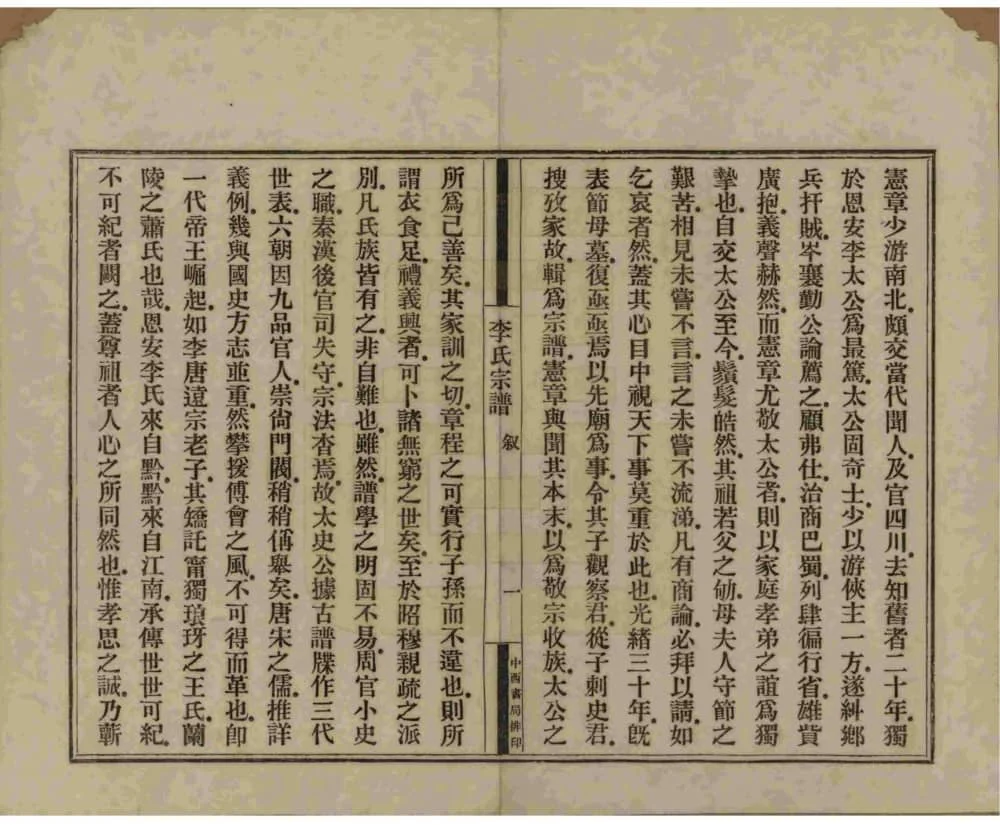 憲章少游南北頗交當代聞人及官四川去知舊者二十年獨
於恩安李太公爲最篤太公固奇士少以游俠主一方遂糾鄉
兵扞賊岑襄勤公論薦之顧弗仕治商巴蜀列肆徧行省雄貲
廣抱義聲赫然而憲章尤敬太公者則以家庭孝弟之誼爲獨
摯也自交太公至今鬚髮皓然其祖若父之劬母夫人守節之
艱苦相見未嘗不言言之未嘗不流涕凡有商論必拜以請如
乞哀者然蓋其心目中視天下事莫重於此也光緒三十年旣
表節母墓復亟亟焉以先廟爲事令其子觀察君從子刺史君
搜攷家故輯爲宗譜憲章與聞其本末以爲敬宗收族太公之
李氏宗譜 叙 一 中西書局排印
所爲己善矣其家訓之切章程之可實行子孫而不違也則所
謂衣食足禮義興者可卜諸無窮之世矣至於昭穆親疏之派
別凡氏族皆有之非自難也雖然譜學之明固不易周官小史
之職秦漢後官司失守宗法杳焉故太史公據古譜牒作三代
世表六朝因九品官人崇尙門閥稍稍偁舉矣唐宋之儒推詳
義例幾與國史方志並重然攀援傅會之風不可得而革也卽
一代帝王崛起如李唐遠宗老子其矯託甯獨琅玡之王氏蘭
陵之蕭氏也哉恩安李氏來自黔黔來自江南承傳世世可紀
不可紀者闕之蓋尊祖者人心之所同然也惟孝思之誠乃蘄